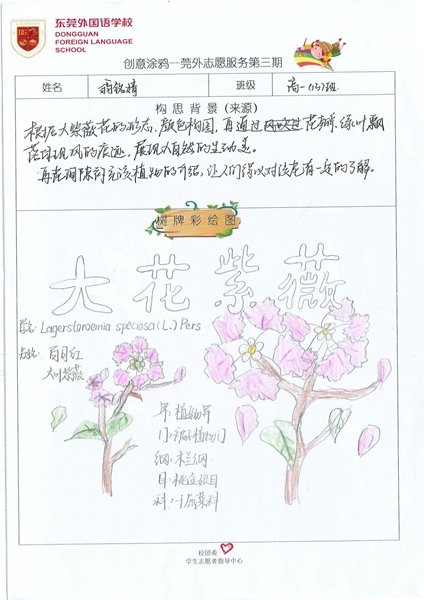 东莞外国语学校
DONGGUAN
FOREIGN LANGUAGE
SCHOOL
创意涂鸦—莞外志愿服务第三期
姓名
班级 高一(13)班
构思背景(来源)
根据大紫薇花的形态,颜色构图,再通过花瓣,绿叶飘
落体现风的痕迹,展现大自然的生动美。
再在间隙补充该植物的介绍,让人们得以对此花有一定的了解。
树牌彩绘图
大花紫薇
学名: Lagerstroemia speciosa(L.) Pers
别名: 百日红
大叶紫薇
界:植物界
门:被子植物门
纲:木兰纲
目:桃金娘目
科:千屈菜科
校团委
学生志愿者指导中心